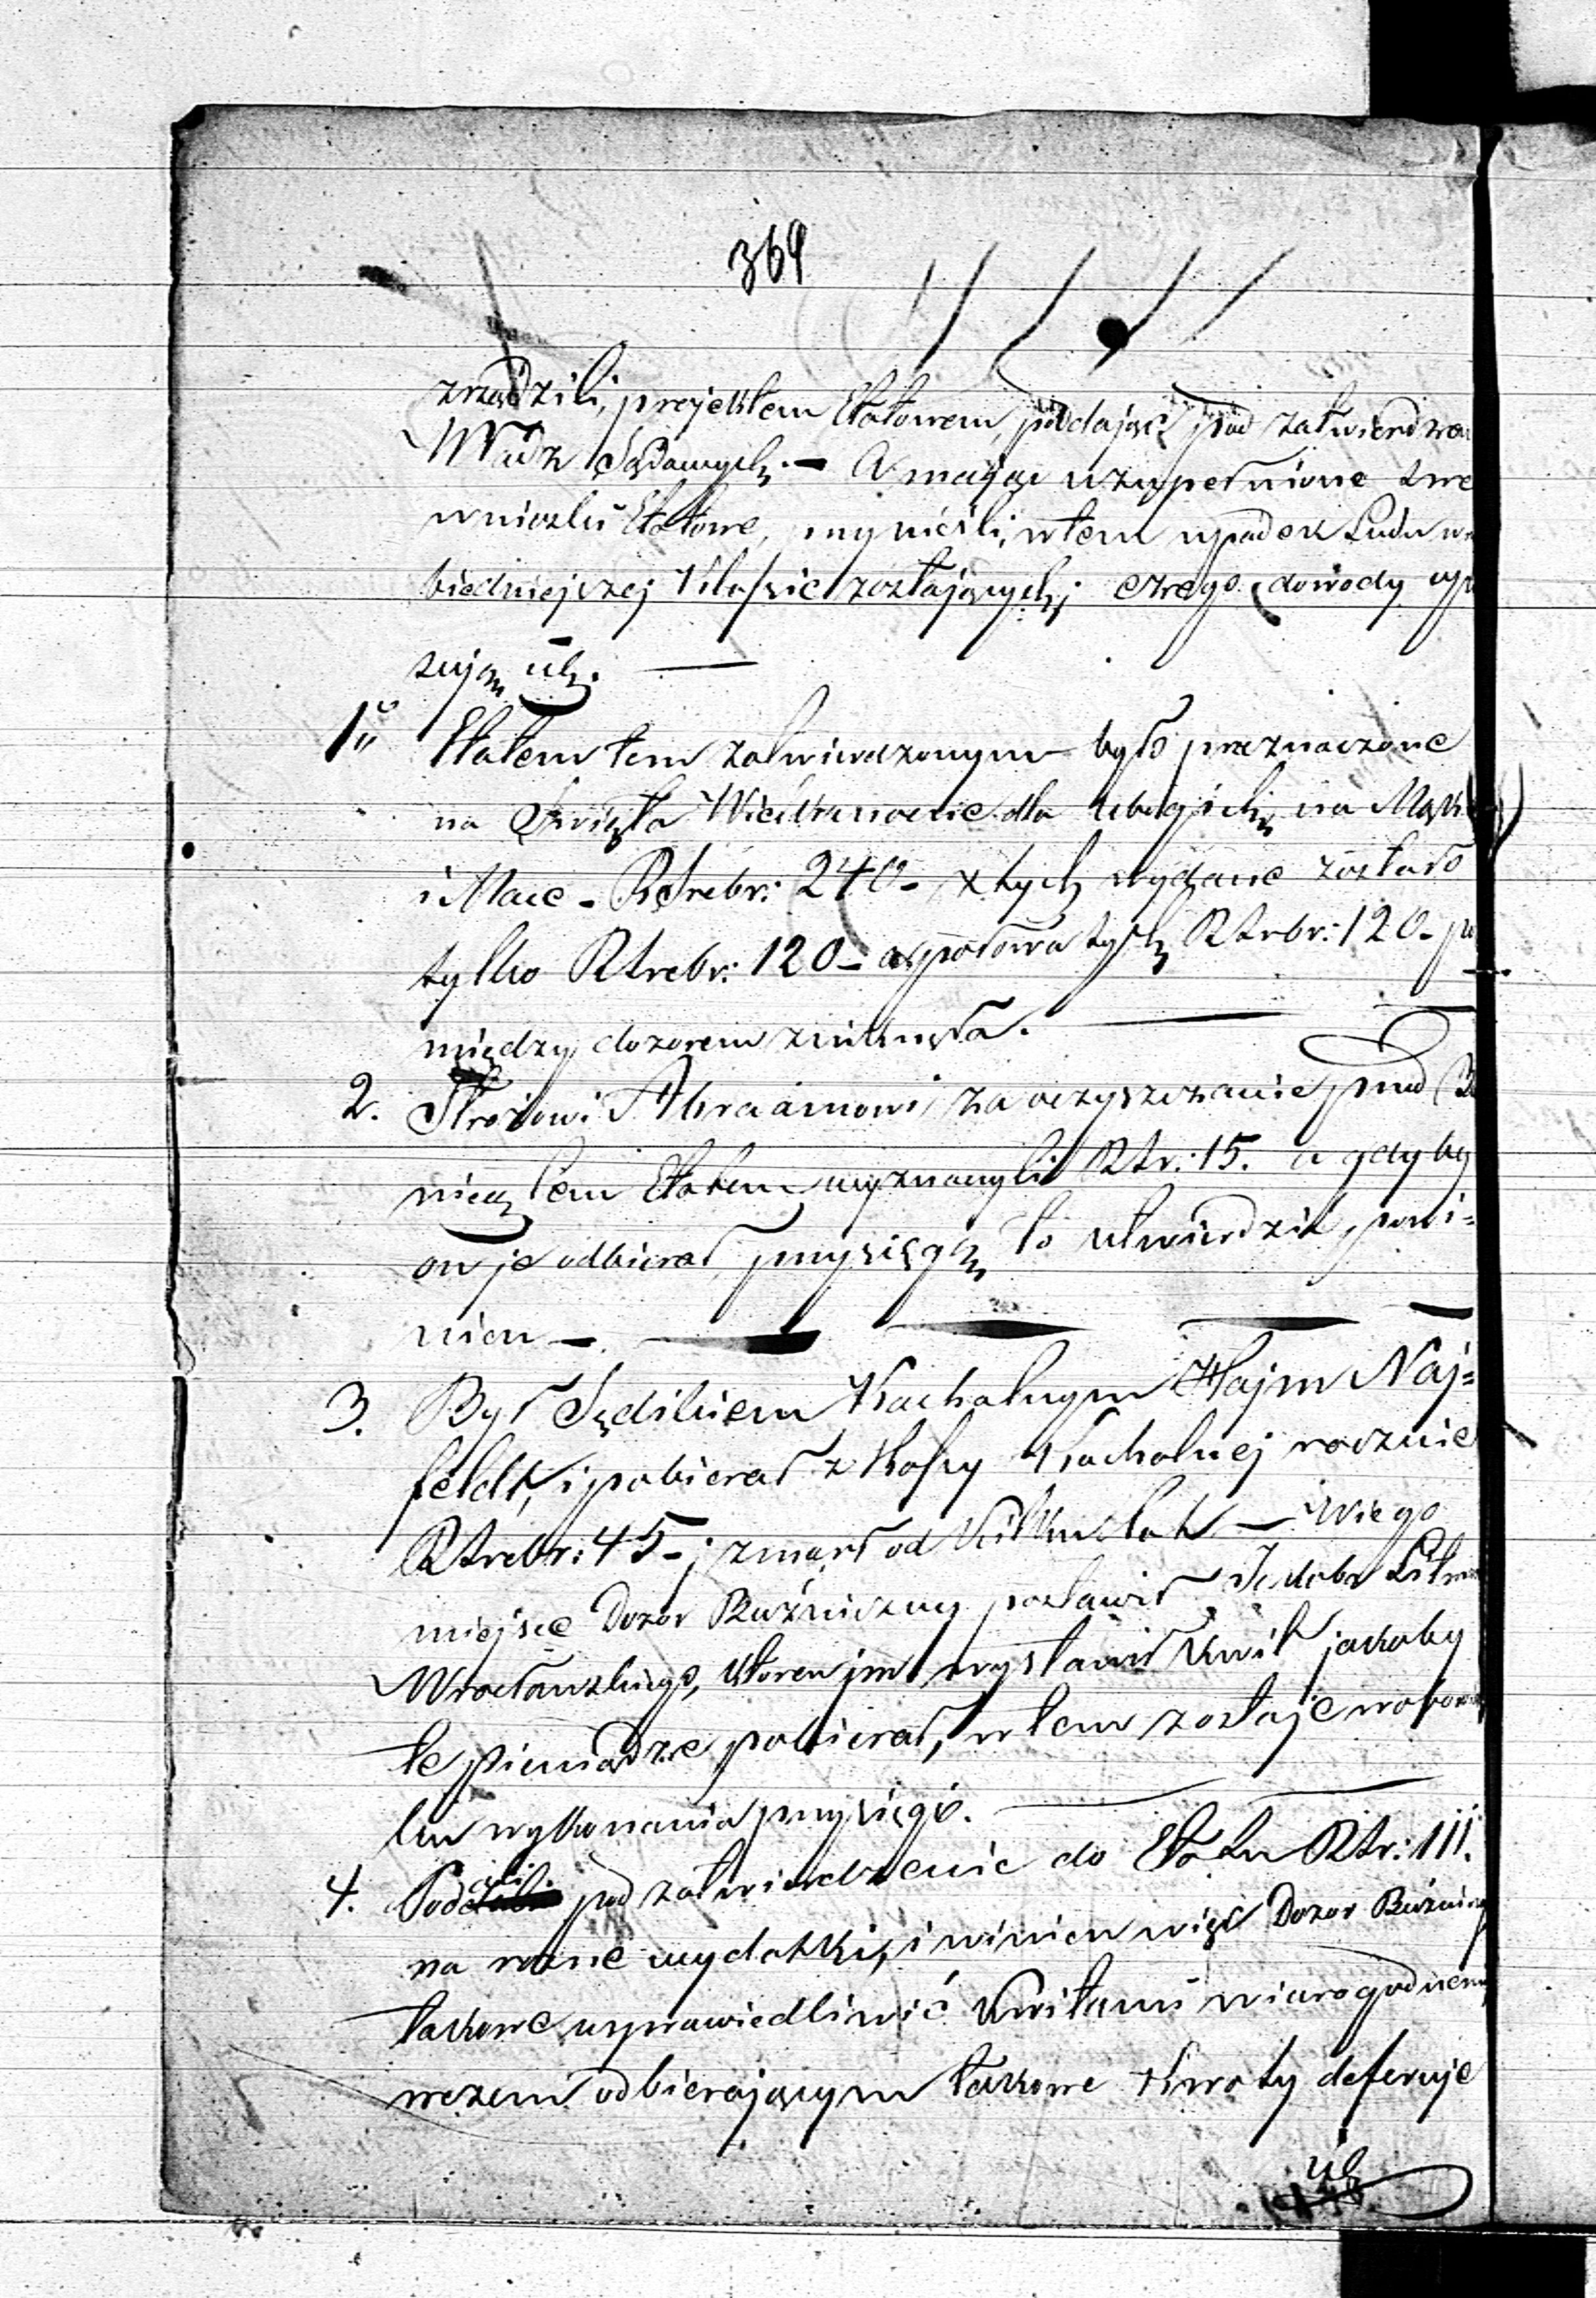 369
zrządzili, projektem Etatowem, poddając pod zatwierdzen
Władz Rządowych. — A mając uzupełnione swe
wnioski Etatowe, myśleli, w tem upadek Ludu w
biedniejszej Klassie zostających; czego dowody
zują ich. —
1° Etatem tem zatwierdzonym było przeznaczone
na Święta Wielkanocne dla ubogich, na Mąkę
i Mace - Rsrebr: 240 - z tych wydane zostało
tylko Rsrebr: 120 - a połowa tych Rsrebr: 120 - po
między dozorem zniknęła. —
2. Stróżowi Abramowi za oczyszczanie pred
nicą tem Etatem wyznaczyli Rsr: 15. a gdyby
on je odbierał przysięgą to utwierdzić powi=
nien —
3. Był Sędzikiem Kachalnym Hajm Naj=
feldt, i pobierał z Kassy Kachalnej rocznie
Rsrebr: 45 -; zmarł od Kilku lat — W jego
miejsce Dozor Buźniczny postawił Jakoba
Wrocławskiego, ktoren im wystawił Kwit jakoby
te pieniądze pobierał, w tem zostaje w obowią
ku wykonania przysięgi. —
4. Podali pod zatwierdzenie do Etatu Rsr: 111.
na rożne wydatki, i winien więc Dozor Buźniczny
takowe usprawiedliwić Kwitami wiarogodnemi
wrazem odbierającym takowe Kwoty deferuje